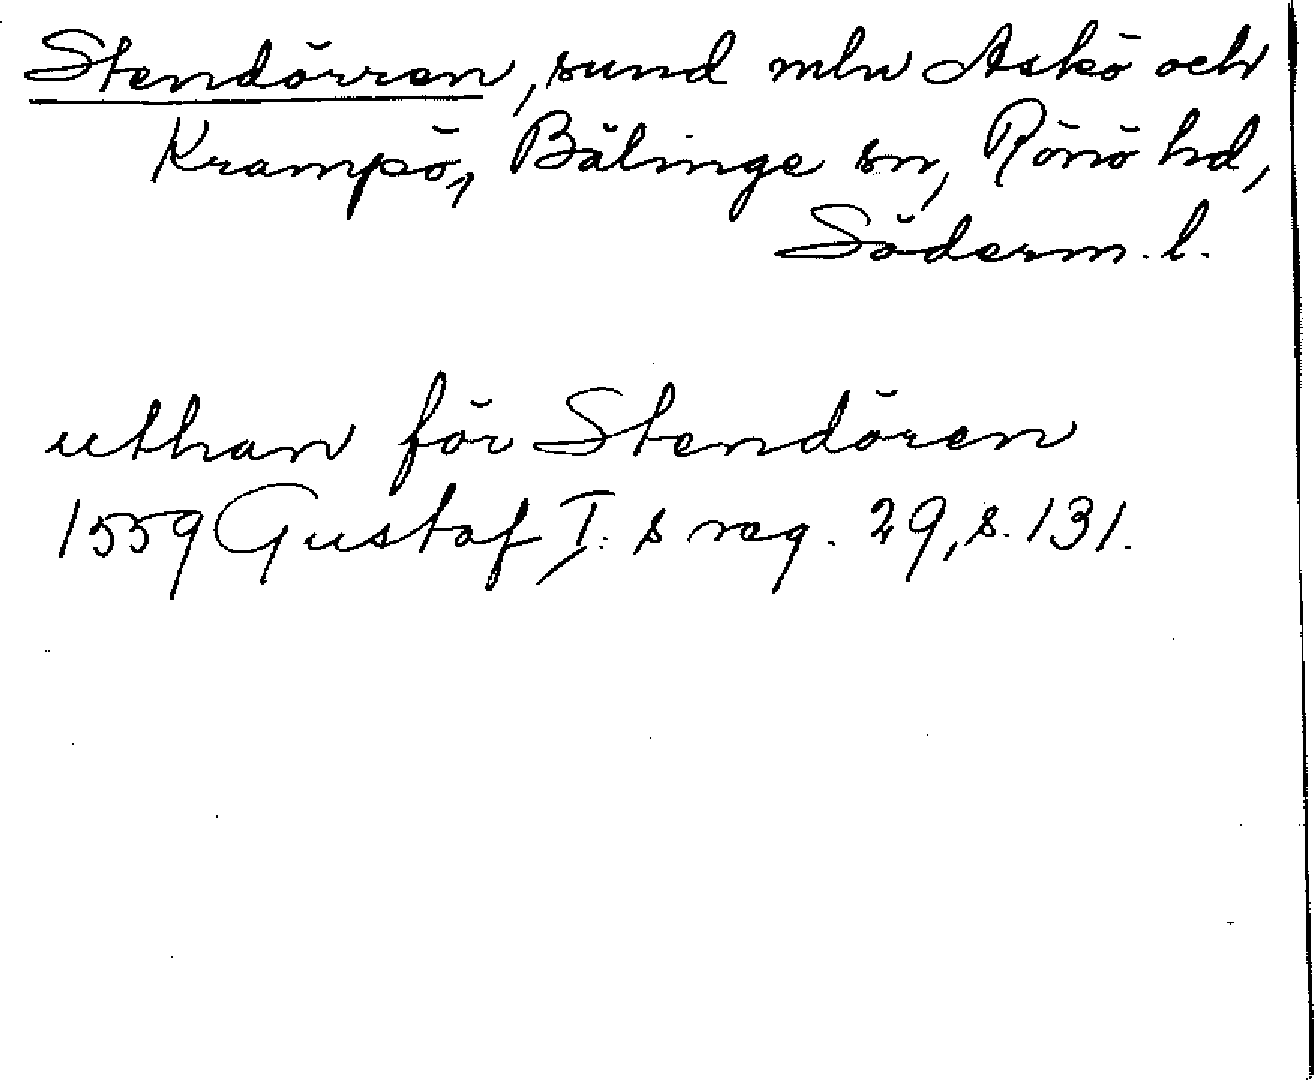 Stendörren, sund mln Askö och
Krampö, Bälinge sn, Rönö hd,
Söderm. l.
uthan för Stendören
1559 Gustaf I: s reg. 29, s. 131.